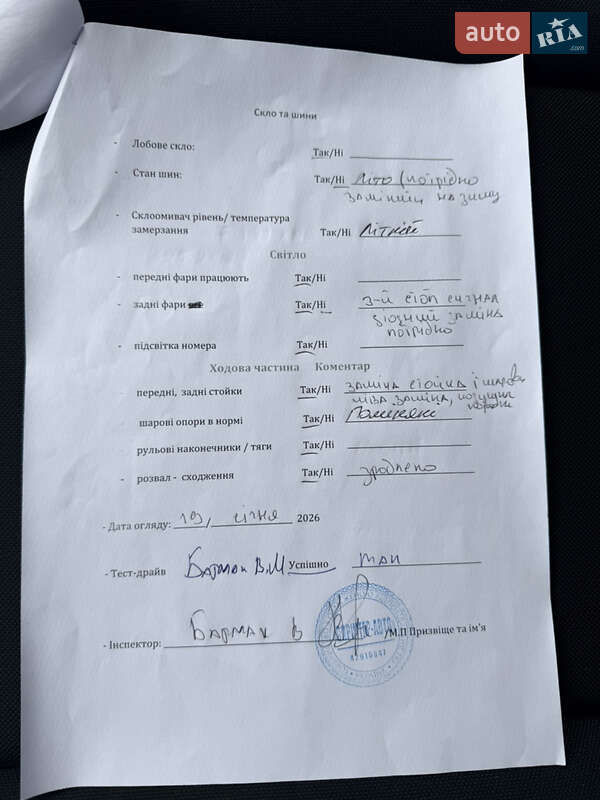 auto RIA .com
Скло та шини
- Лобове скло: Так/Ні
- Стан шин: Так/Ні Літо (потрібно
замінити на зиму
- Склоомивач рівень/ температура
замерзання Так/Ні Літній
Світло
- передні фари працюють Так/Ні
- задні фари Так/Ні 3-й стоп сигнал
діодний заміна
потрібно
- підсвітка номера Так/Ні
Ходова частина Коментар
- передні, задні стойки Так/Ні заміна стойка і шарова
ліва заміна,
шарові опори в нормі Так/Ні Поміняні
- рульові наконечники / тяги Так/Ні
- розвал - сходження Так/Ні зроблено
- Дата огляду: 19, січня 2026
- Тест-драйв Бармак В.М Успішно
- Інспектор: Бармак В /М.П Призвіще та ім'я
42910847